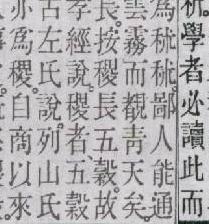 秫學者必讀此而
為秫鄙人能通
雲霧而覩青天矣
長按稷長五穀故
孝經說稷者五穀
古左氏說列山氏
亦為稷自商以來